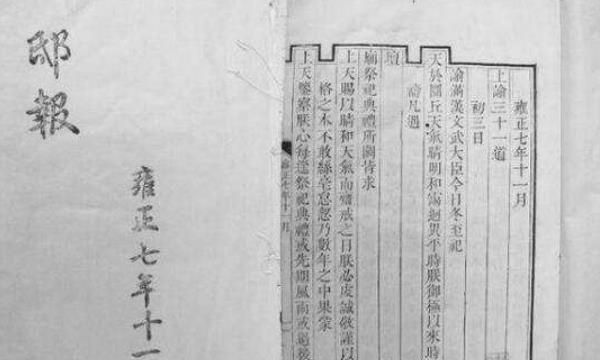 邸報
雍正七年十一
雍正七年十一月
上諭三十一道
初三日
諭滿漢文武大臣今日冬至祀
天於圜丘天氣晴明和靄迥異平時朕御極以來時
諭凡遇
壇
廟祭祀典禮所關皆求
上天賜以晴和天氣而齋戒之日朕必虔誠敬謹以
格之本不敢絲毫怠忽乃數年之中果蒙
上天鑒察朕心每逢祭祀典禮或先期風雨或過後
雍正七年十一月